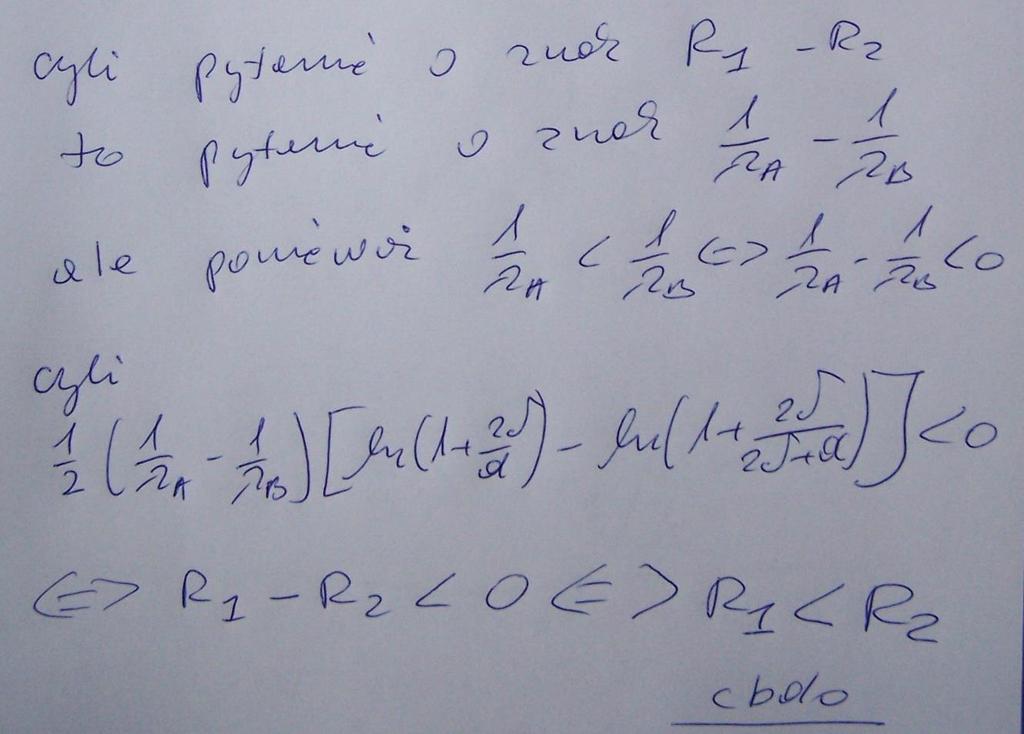 czyli pytanie o znak R₁ - R₂
to pytanie o znak 1/λ_A - 1/λ_B
ale ponieważ 1/λ_A < 1/λ_B <=> 1/λ_A - 1/λ_B < 0
czyli
1/2 (1/λ_A - 1/λ_B) [ln(1 + 2δ/d) - ln(1 + 2δ/(2δ+d))] < 0
<=> R₁ - R₂ < 0 <=> R₁ < R₂
cbdo